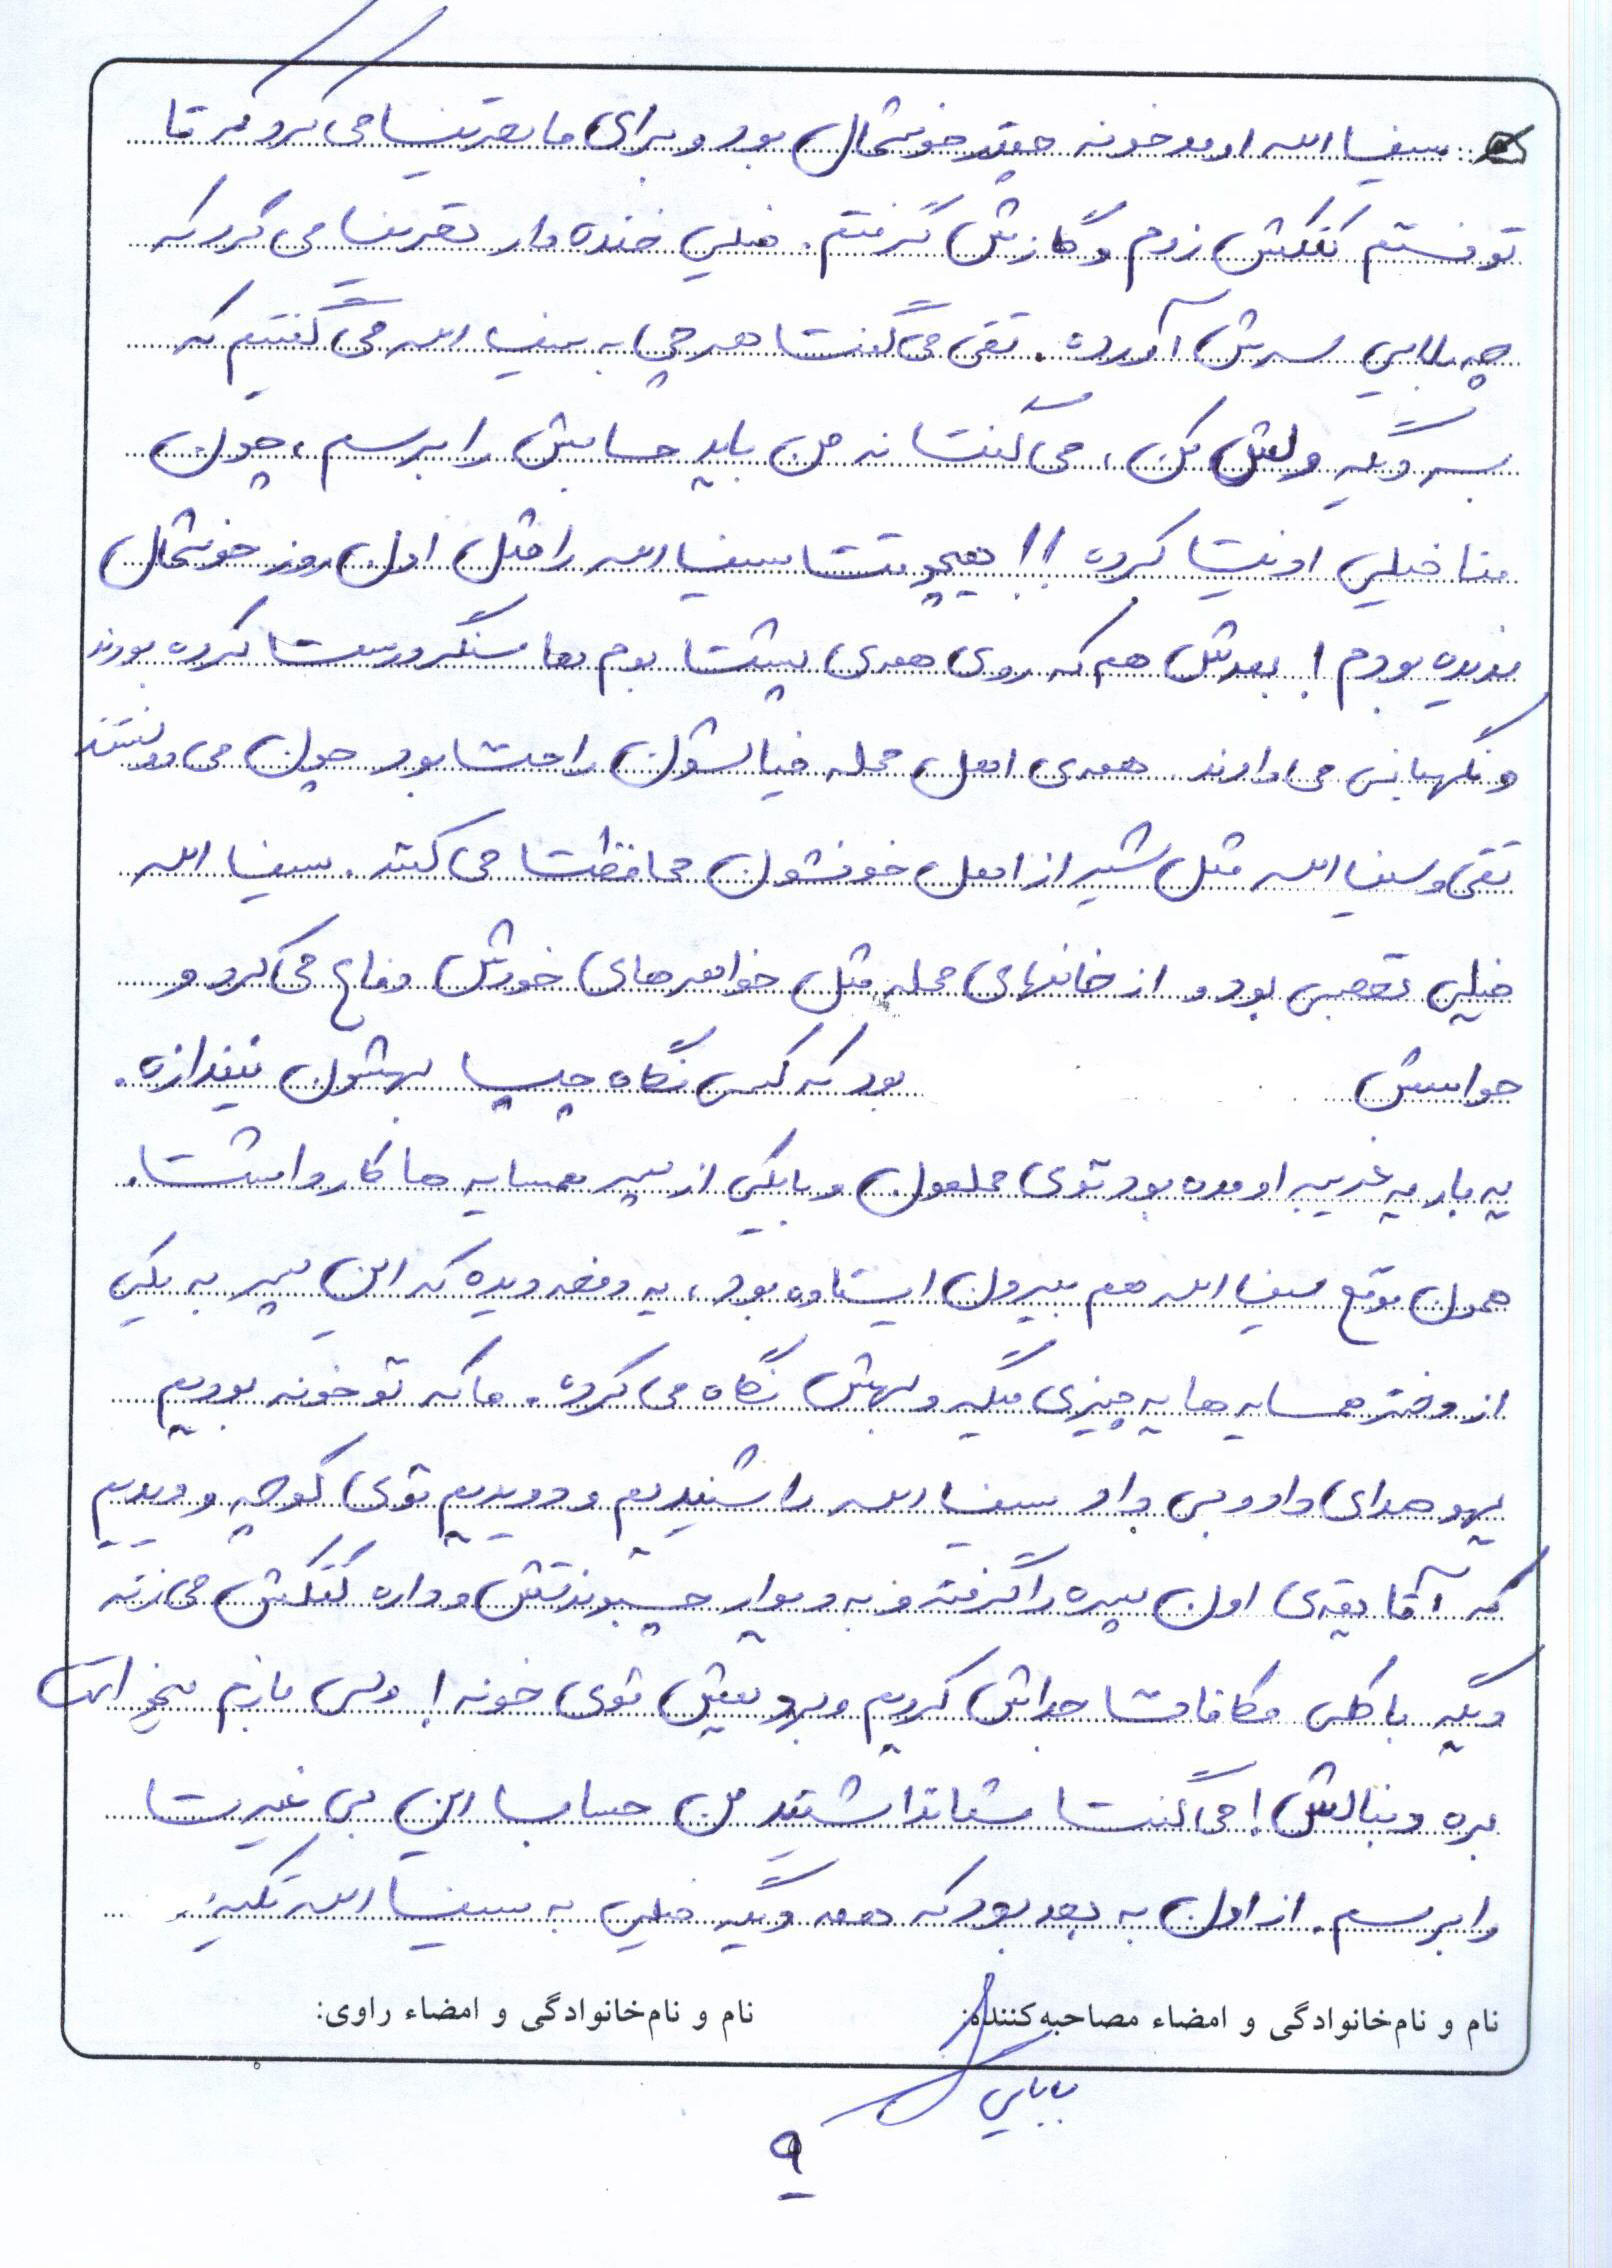 سیف الله اومد خونه چقدر خوشحال بود و برای ما تعریف می کرد که تا
تونستم کتکش زدم و گازش گرفتم. خیلی خنده دار تعریف می کرد که
چه بلایی سرش آورده. تقی می گفت هر چی به سیف الله می گفتیم که
بسه دیگه ولش کن، می گفت نه من باید حسابش را برسم، چون
منا خیلی اذیت کرده!! هیچوقت سیف الله را مثل اون روز خوشحال
ندیده بودم! بعدش هم که روی همه ی پشت بوم ها سنگر درست کرده بودند
و نگهبانی می دادند. همه ی اهل محله خیالشون راحت بود چون می دونستند
تقی و سیف الله مثل شیر از اهل خونشون محافظت می کنند. سیف الله
خیلی تعصبی بود و از خانمهای محله مثل خواهرهای خودش دفاع می کرد و
حواسش بود که کسی نگاه چپ بهشون نیندازه.
یه بار یه غریبه اومده بود توی محلمون و با یکی از پسر همسایه ها کار داشت.
همون موقع سیف الله هم بیرون ایستاده بود، یه دفعه دیده که این پسر به یکی
از دختر همسایه ها یه چیزی میگه و بهش نگاه می کرده. ما که تو خونه بودیم
یهو صدای داد و بی داد سیف الله را شنیدیم و دویدیم توی کوچه و دیدیم
که آقا یقه ی اون پسره را گرفته و به دیوار چسبوندتش و داره کتکش می زنه
دیگه با کلی مکافات جداش کردیم و بردیمش توی خونه! ولی بازم میخواست
بره دنبالش! می گفت شما نذاشتید من حساب این بی غیرت
را برسم. از اون به بعد بود که همه دیگه خیلی به سیف الله تکیه
نام و نام‌خانوادگی و امضاء مصاحبه‌کننده: نام و نام‌خانوادگی و امضاء راوی:
بابایی
۹